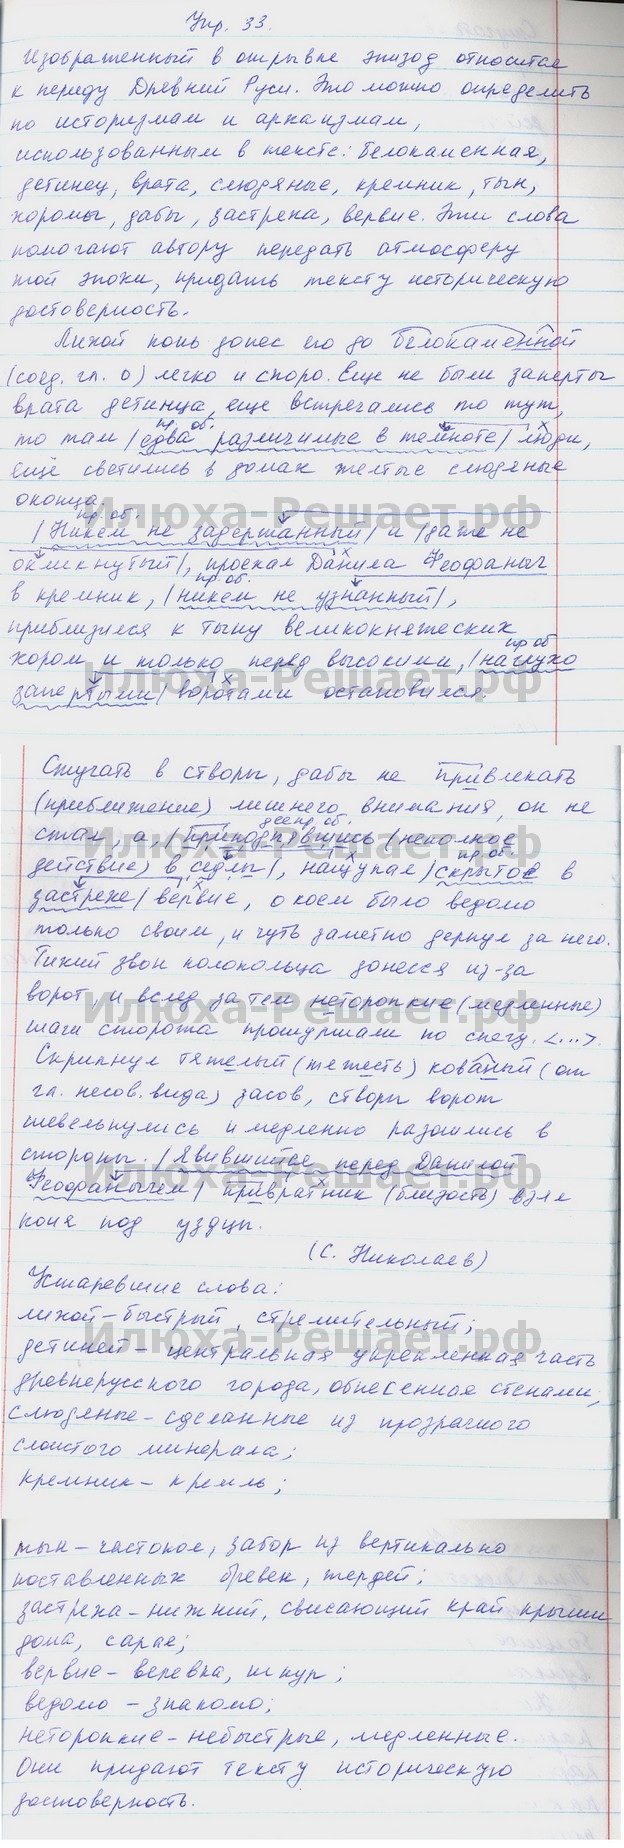 Упр. 33.
Изображенный в отрывке эпизод относится
к периоду Древней Руси. Это можно определить
по историзмам и архаизмам,
использованным в тексте: белокаменная,
детинец, врата, слюдяные, кремник, тын,
хоромы, дабы, застреха, вервие. Эти слова
помогают автору передать атмосферу
той эпохи, придать тексту историческую
достоверность.
Лихой конь донес его до белокаменной
(соед. гл. о) легко и споро. Еще не были заперты
врата детинца, еще встречались то тут,
пр. об. х
то там |едва различимые в темноте| люди,
еще светились в домах желтые слюдяные
оконца.
пр. об.
|Никем не задержанный| и |даже не
окликнутый|, проехал Данила Феофаныч
пр. об. х
в кремник, |никем не узнанный|,
приблизился к тыну великокняжеских
пр об
хором и только перед высокими, |наглухо
запертыми| воротами остановился.
Стучать в створы, дабы не привлекать
(приближение) лишнего внимания, он не
деепр. об.
стал, а, |приподнявшись (неполное
пр. об.
действие) в седле|, нащупал |скрытое в
застрехе| вервие, о коем было ведомо
только своим, и чуть заметно дернул за него.
Тихий звон колокольца донесся из-за
ворот, и вслед за тем неторопкие (медленные)
шаги сторожа прошуршали по снегу. <...>.
Скрипнул тяжелый (тяжесть) кованый (от
гл. несов. вида) засов, створы ворот
шевельнулись и медленно разошлись в
стороны. |Явившийся перед Данилой
Феофанычем| привратник (близость) взял
коня под уздцы.
(С. Николаев)
Устаревшие слова:
лихой – быстрый, стремительный;
детинец – центральная укрепленная часть
древнерусского города, обнесенная стенами;
слюдяные – сделанные из прозрачного
слоистого минерала;
кремник – кремль;
тын – частокол, забор из вертикально
поставленных бревен, жердей;
застреха – нижний, свисающий край крыши
дома, сарая;
вервие – веревка, шнур;
ведомо – знакомо;
неторопкие – небыстрые, медленные.
Они придают тексту историческую
достоверность.
Илюха-Решает.рф
Илюха-Решает.рф
Илюха-Решает.рф
Илюха-Решает.рф
Илюха-Решает.рф
Илюха-Решает.рф